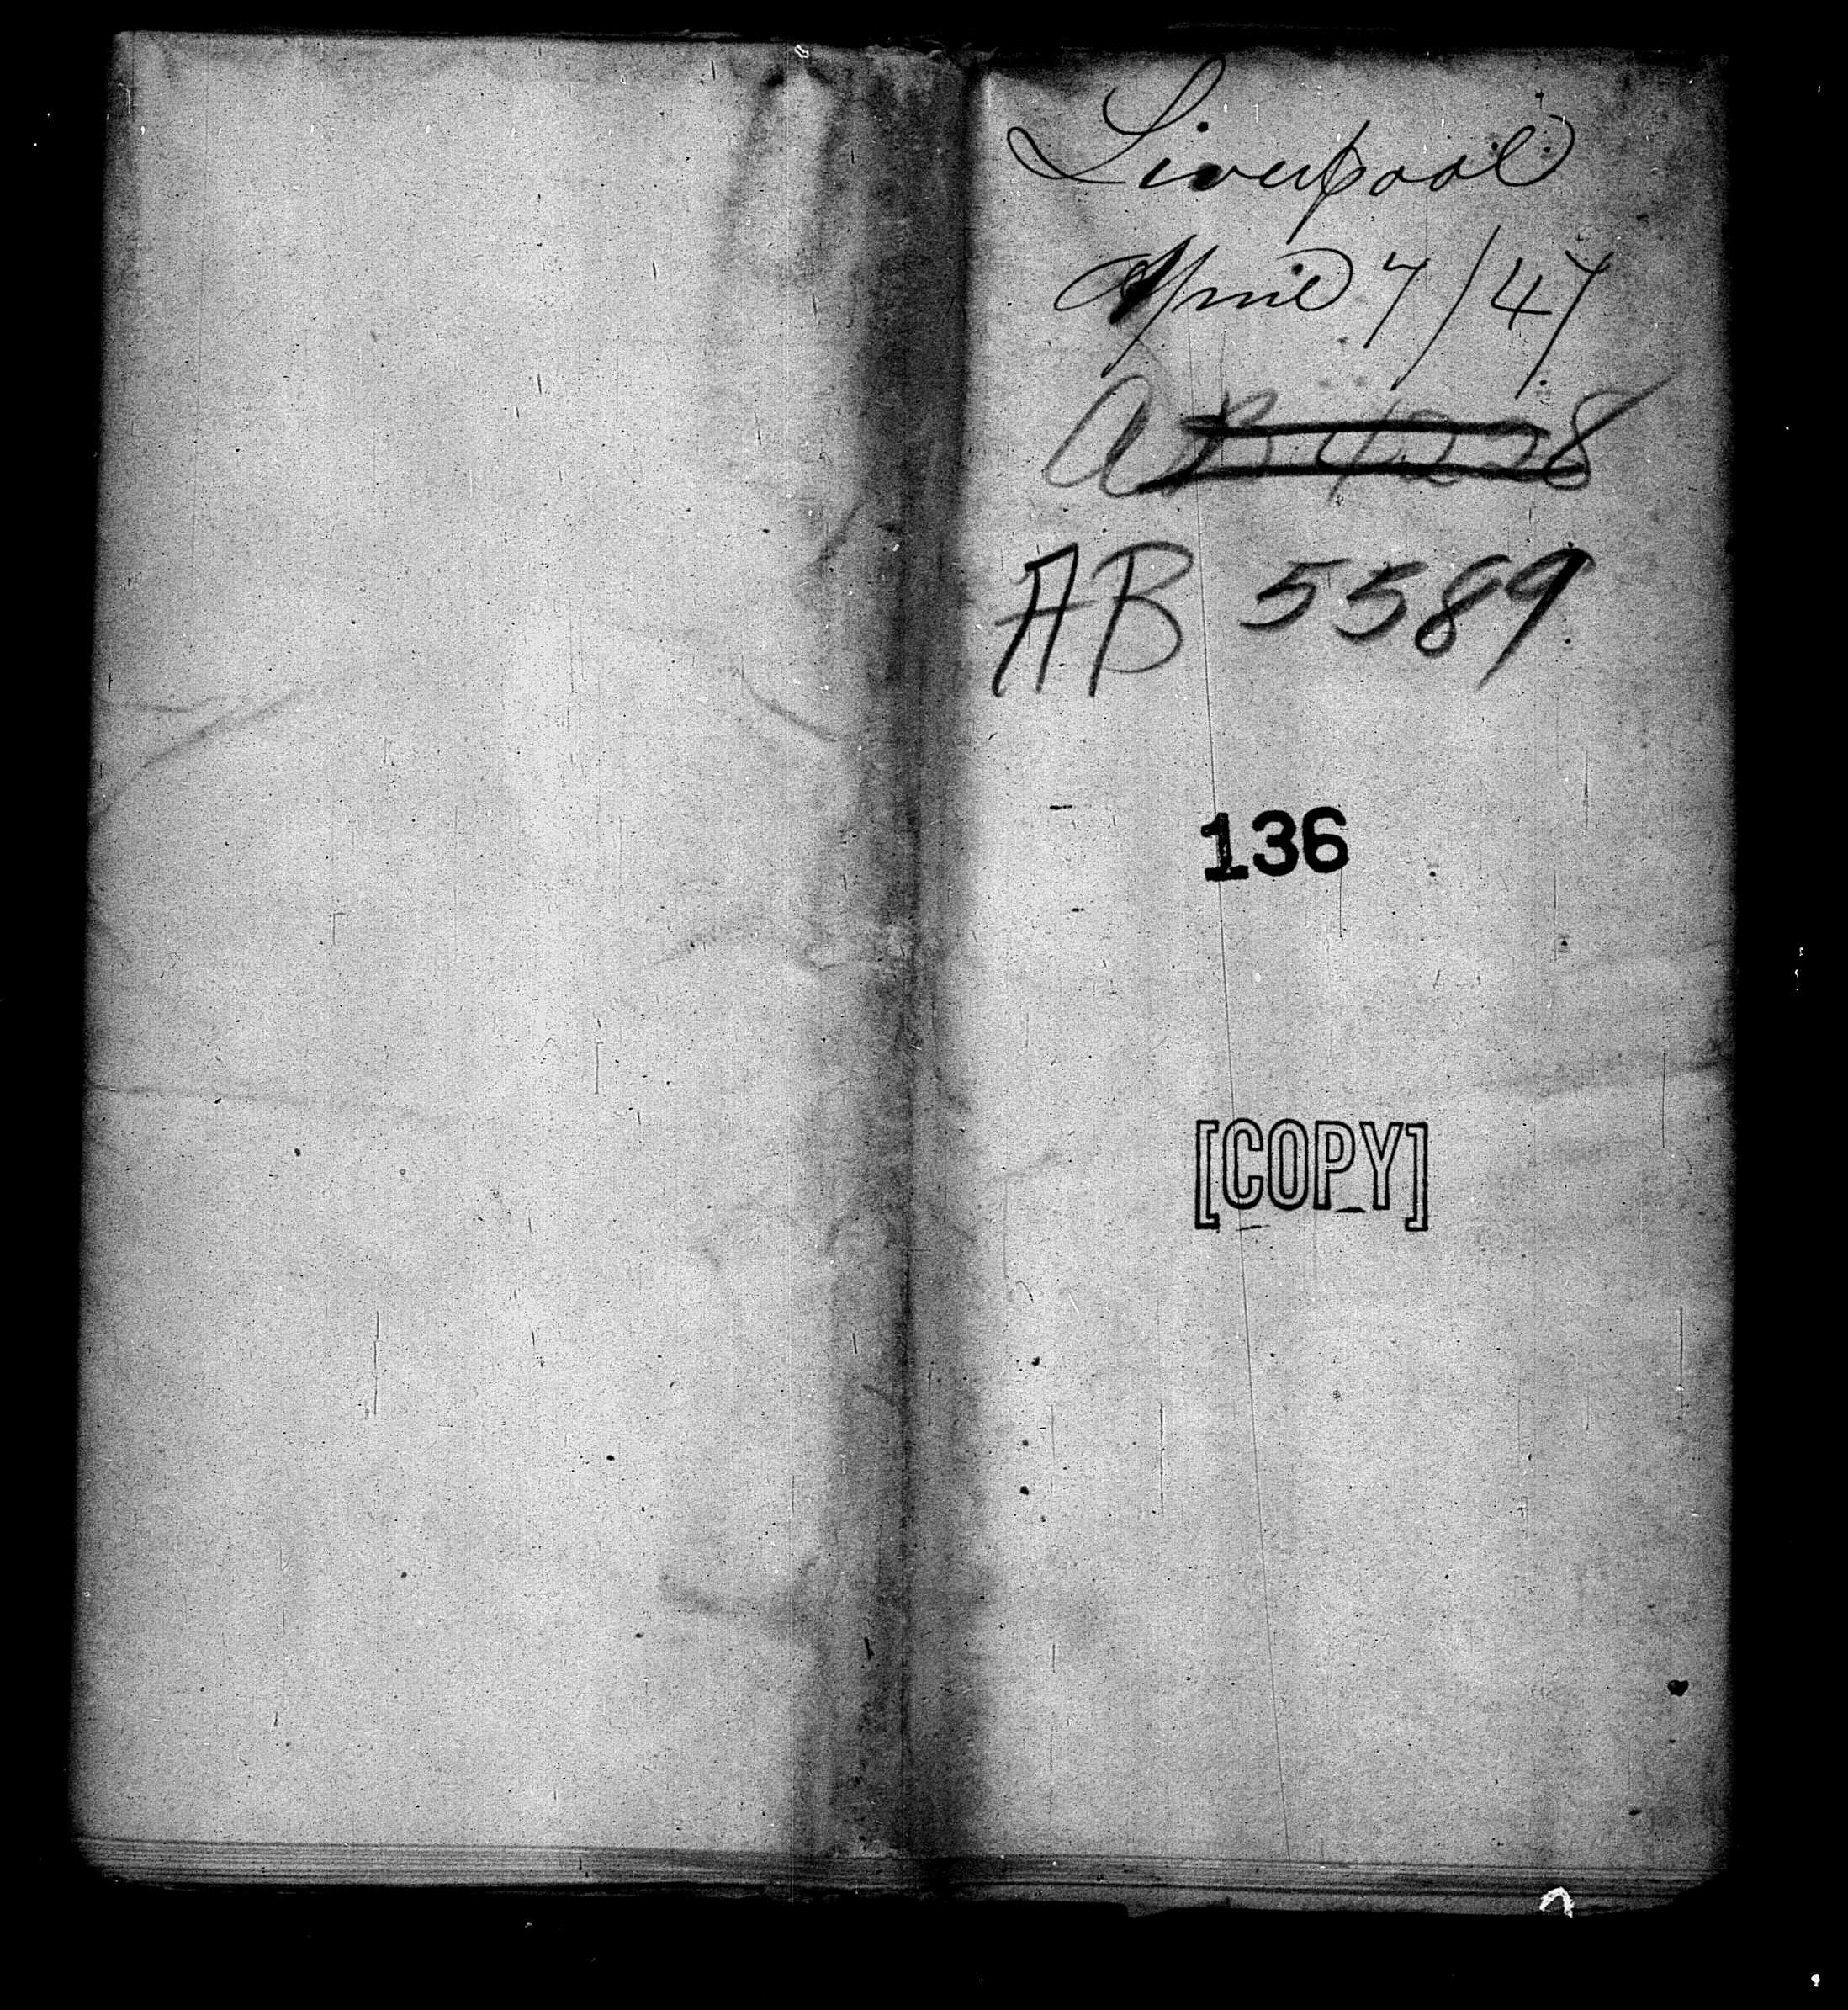 Liverpool
April 7/47
AB 5589
136
[COPY]